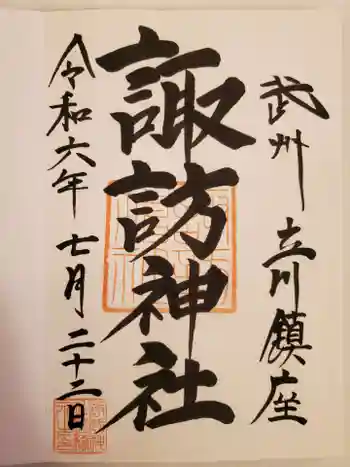 武州 立川鎮座
諏訪神社
令和六年 七月二十二日